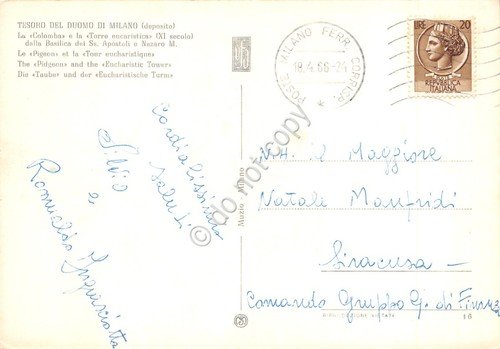 TESORO DEL DUOMO DI MILANO (deposito)
La «Colomba» e la «Torre eucaristica» (XI secolo)
dalla Basilica dei Ss. Apostoli e Nazaro M.
Le «Pigeon» et la «Tour eucharistique»
The «Pidgeon» and the «Eucharistic Tower»
Die «Taube» und der «Eucharistische Turm»
POSTE MILANO FERR. CORRISP.
18.4.66-24
LIRE 20
REPUBBLICA
ITALIANA
Cordialissimi
saluti
Silvia
e
Romualdo
N.H. il Maggiore
Natale Manfridi
Siracusa
Comando Gruppo G. di Finanza
Muzio Milano
RIPRODUZIONE VIETATA
16
do not copy